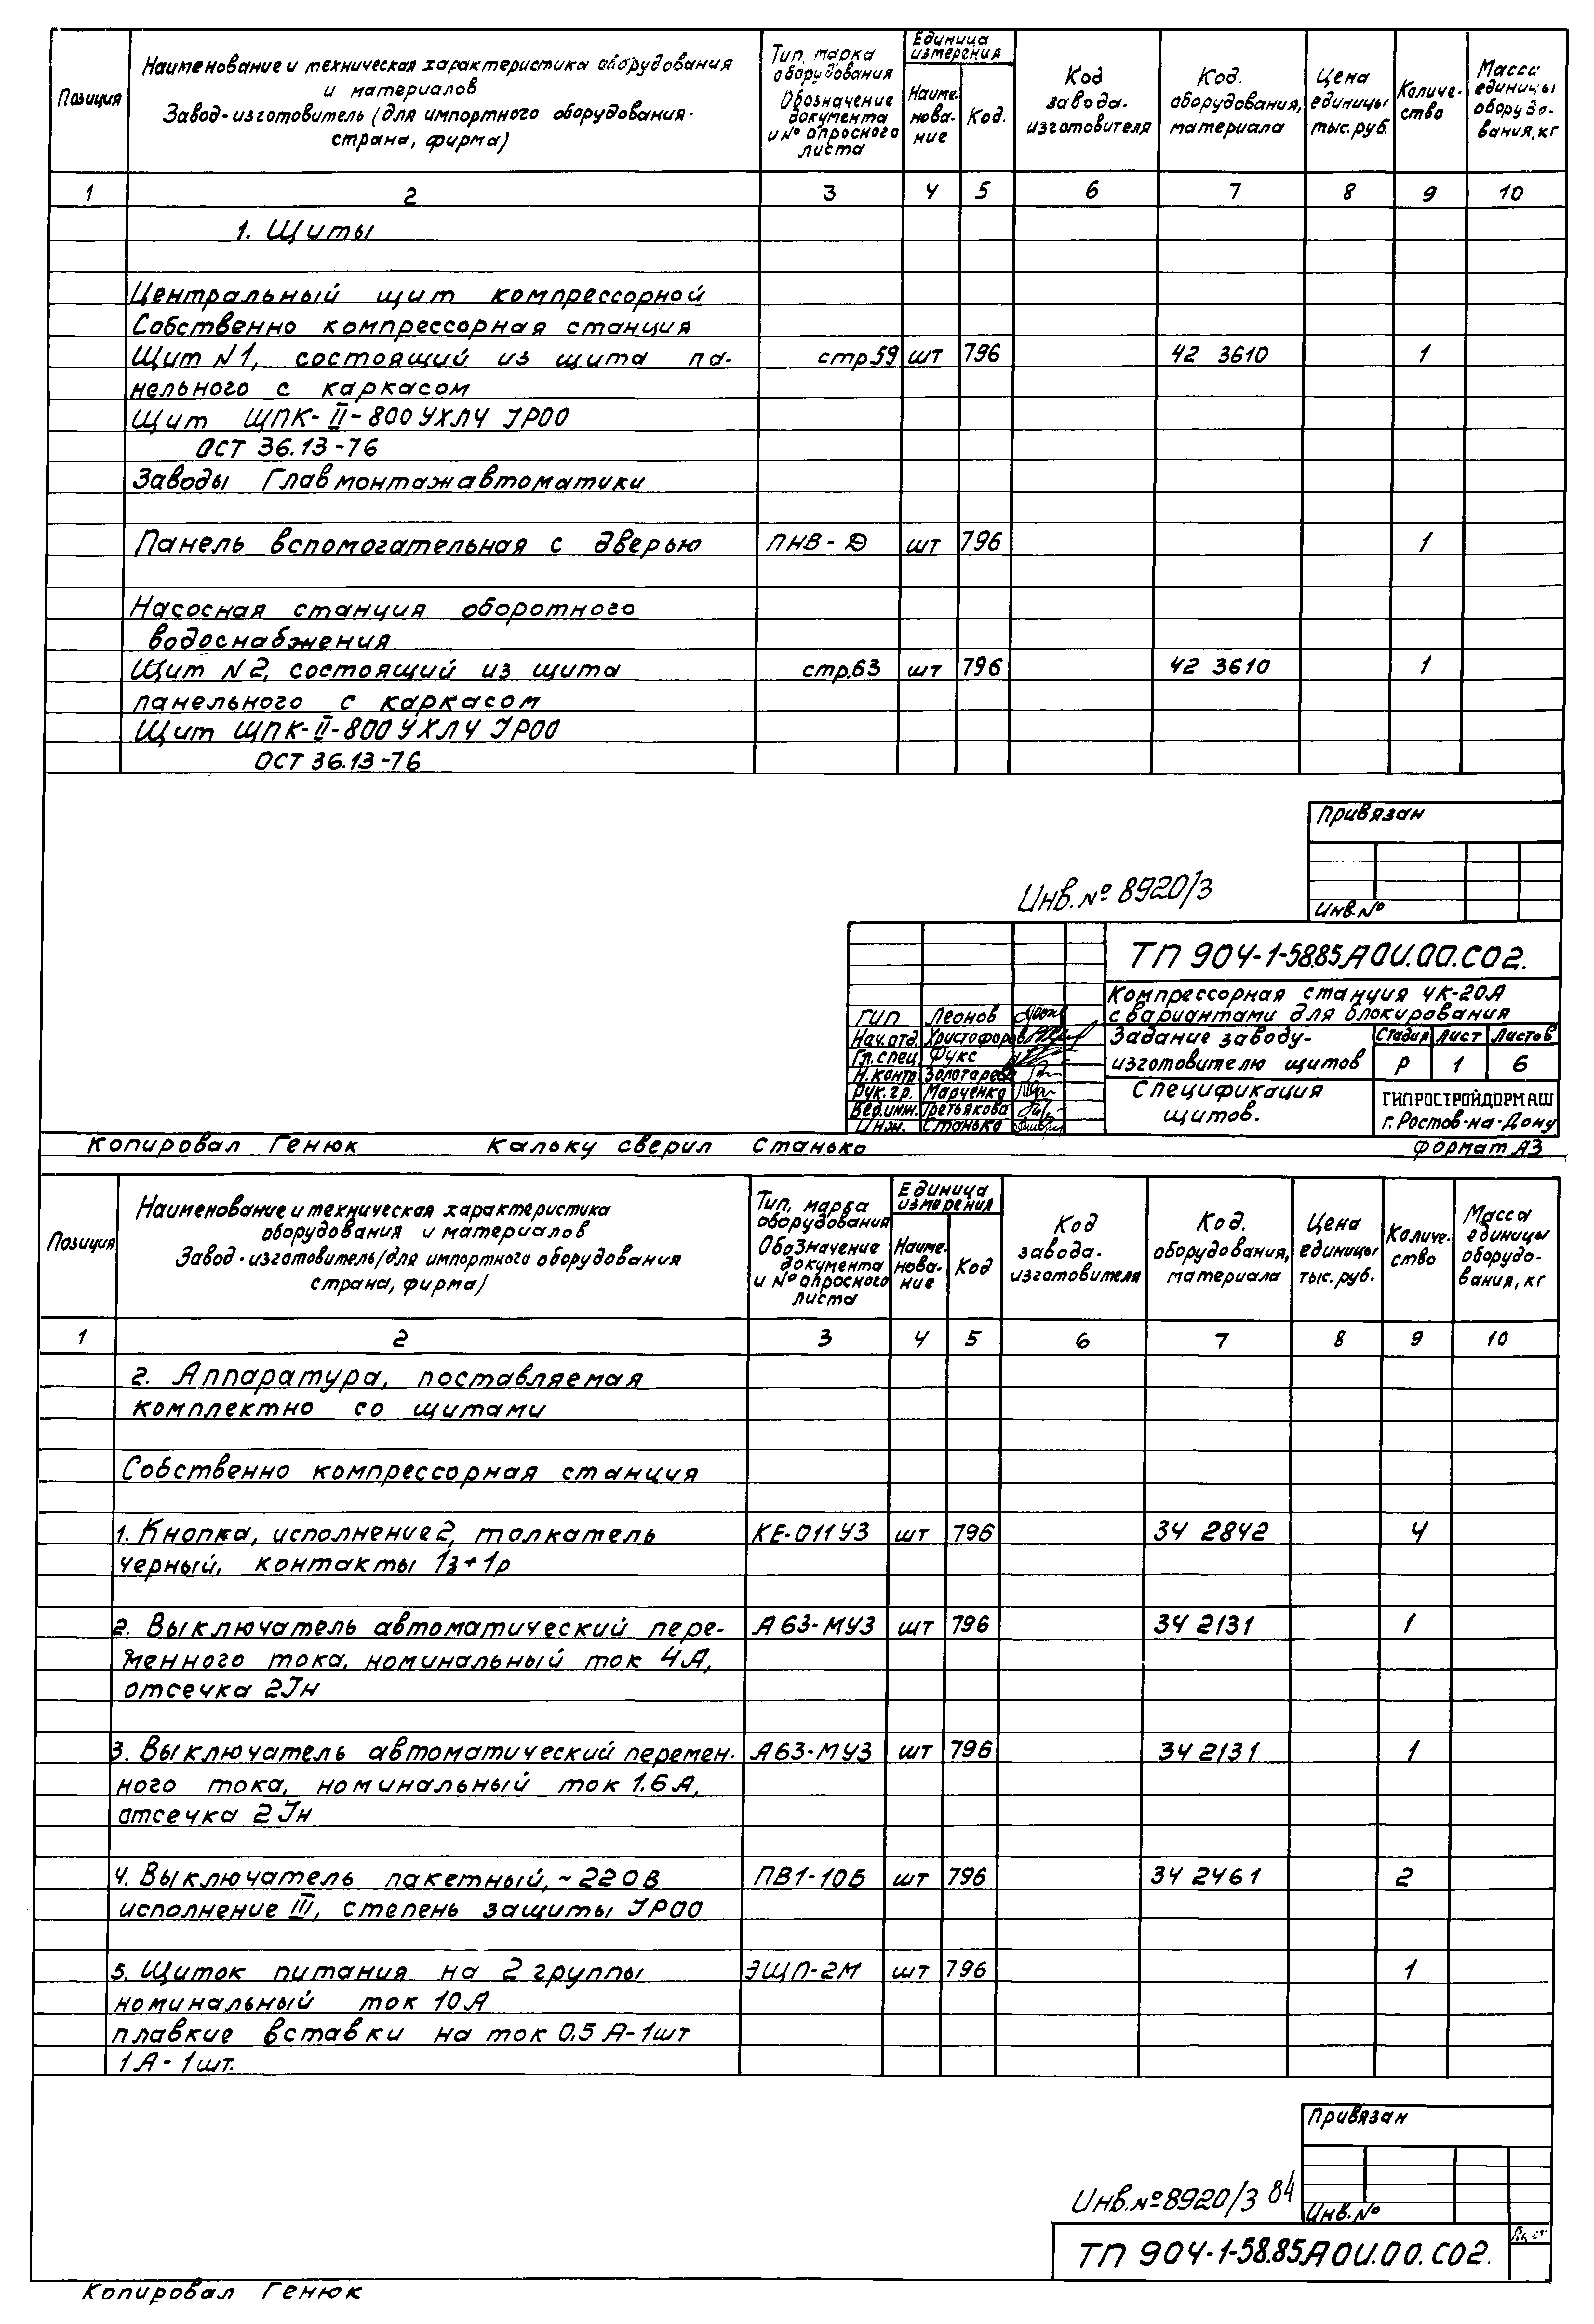 Позиция
Наименование и техническая характеристика оборудования
и материалов
Завод-изготовитель (для импортного оборудования-
страна, фирма)
Тип, марка
оборудования
Обозначение
документа
и № опросного
листа
Единица
измерения
Наиме-
нова-
ние
Код.
Код
завода-
изготовителя
Код.
оборудования,
материала
Цена
единицы
тыс. руб.
Количе-
ство
Масса
единицы
оборудо-
вания, кг
1 2 3 4 5 6 7 8 9 10
1. Щиты
Центральный щит компрессорной
Собственно компрессорная станция
Щит N1, состоящий из щита па- стр.59 шт 796 42 3610 1
нельного с каркасом
Щит ЩПК-II-800 УХЛ4 IP00
ОСТ 36.13-76
Заводы Главмонтажавтоматики
Панель вспомогательная с дверью ПНВ-Д шт 796 1
Насосная станция оборотного
водоснабжения
Щит N2, состоящий из щита стр.63 шт 796 42 3610 1
панельного с каркасом
Щит ЩПК-II-800 УХЛ4 IP00
ОСТ 36.13-76
Привязан
Инв. № 8920/3
Инв. №
ТП 904-1-58.85 АОИ.00.СО2.
Компрессорная станция 4К-20А
с вариантами для блокирования
ГИП Леонов
Нач.отд. Христофоров
Гл.спец. Фукс
Н.контр. Золотарева
Рук.гр. Марченко
Вед.инж. Третьякова
Инж. Станько
Задание заводу-
изготовителю щитов
Стадия Лист Листов
Р 1 6
Спецификация
щитов.
ГИПРОСТРОЙДОРМАШ
г. Ростов-на-Дону
Копировал Генюк Кальку сверил Станько Формат А3
Позиция
Наименование и техническая характеристика
оборудования и материалов
Завод-изготовитель/для импортного оборудования
страна, фирма)
Тип, марка
оборудования
Обозначение
документа
и № опросного
листа
Единица
измерения
Наиме-
нова-
ние
Код
Код
завода-
изготовителя
Код.
оборудования,
материала
Цена
единицы
тыс. руб.
Количе-
ство
Масса
единицы
оборудо-
вания, кг
1 2 3 4 5 6 7 8 9 10
2. Аппаратура, поставляемая
комплектно со щитами
Собственно компрессорная станция
1. Кнопка, исполнение 2, толкатель КЕ-011У3 шт 796 34 2842 4
черный, контакты 1з+1р
2. Выключатель автоматический пере- А63-МУ3 шт 796 34 2131 1
менного тока, номинальный ток 4А,
отсечка 2Iн
3. Выключатель автоматический перемен- А63-МУ3 шт 796 34 2131 1
ного тока, номинальный ток 1.6 А,
отсечка 2Iн
4. Выключатель пакетный, ~220В ПВ1-10Б шт 796 34 2461 2
исполнение III, степень защиты IP00
5. Щиток питания на 2 группы ЭЩП-2М шт 796 1
номинальный ток 10А
плавкие вставки на ток 0.5 А-1шт
1А-1шт.
Привязан
Инв. № 8920/3 84
Инв. №
ТП 904-1-58.85 АОИ.00.СО2.
Лист
Копировал Генюк